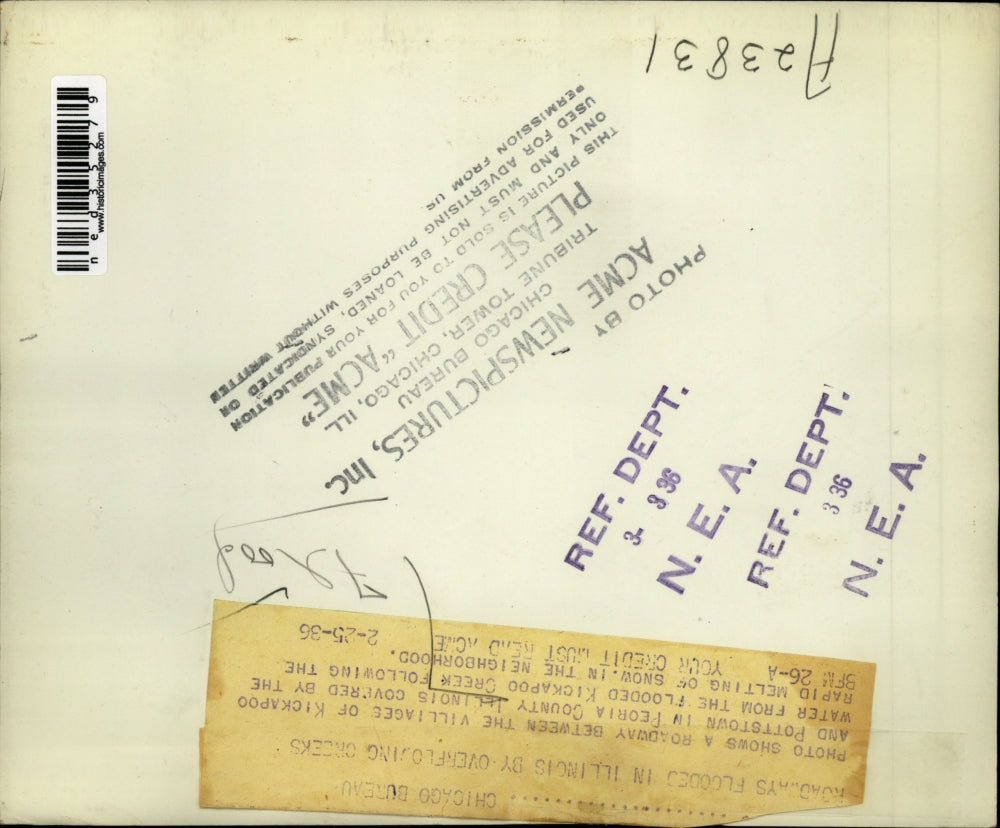 A23831
PHOTO BY
ACME NEWSPICTURES, Inc.
CHICAGO BUREAU
TRIBUNE TOWER, CHICAGO, ILL.
PLEASE CREDIT "ACME"
THIS PICTURE IS SOLD TO YOU FOR YOUR PUBLICATION
ONLY AND MUST NOT BE LOANED, SYNDICATED OR
USED FOR ADVERTISING PURPOSES WITHOUT WRITTEN
PERMISSION FROM US.
ned35279
www.historicimages.com
REF. DEPT.
3 3 36
N. E. A.
REF. DEPT.
3 36
N. E. A.
Flood
CHICAGO BUREAU
ROADWAYS FLOODED IN ILLINOIS BY OVERFLOWING CREEKS
PHOTO SHOWS A ROADWAY BETWEEN THE VILLIAGES OF KICKAPOO
AND POTTSTOWN IN PEORIA COUNTY ILLINOIS COVERED BY THE
WATER FROM THE FLOODED KICKAPOO CREEK FOLLOWING THE
RAPID MELTING OF SNOW IN THE NEIGHBORHOOD.
BFM 26-A YOUR CREDIT MUST READ ACME 2-25-36